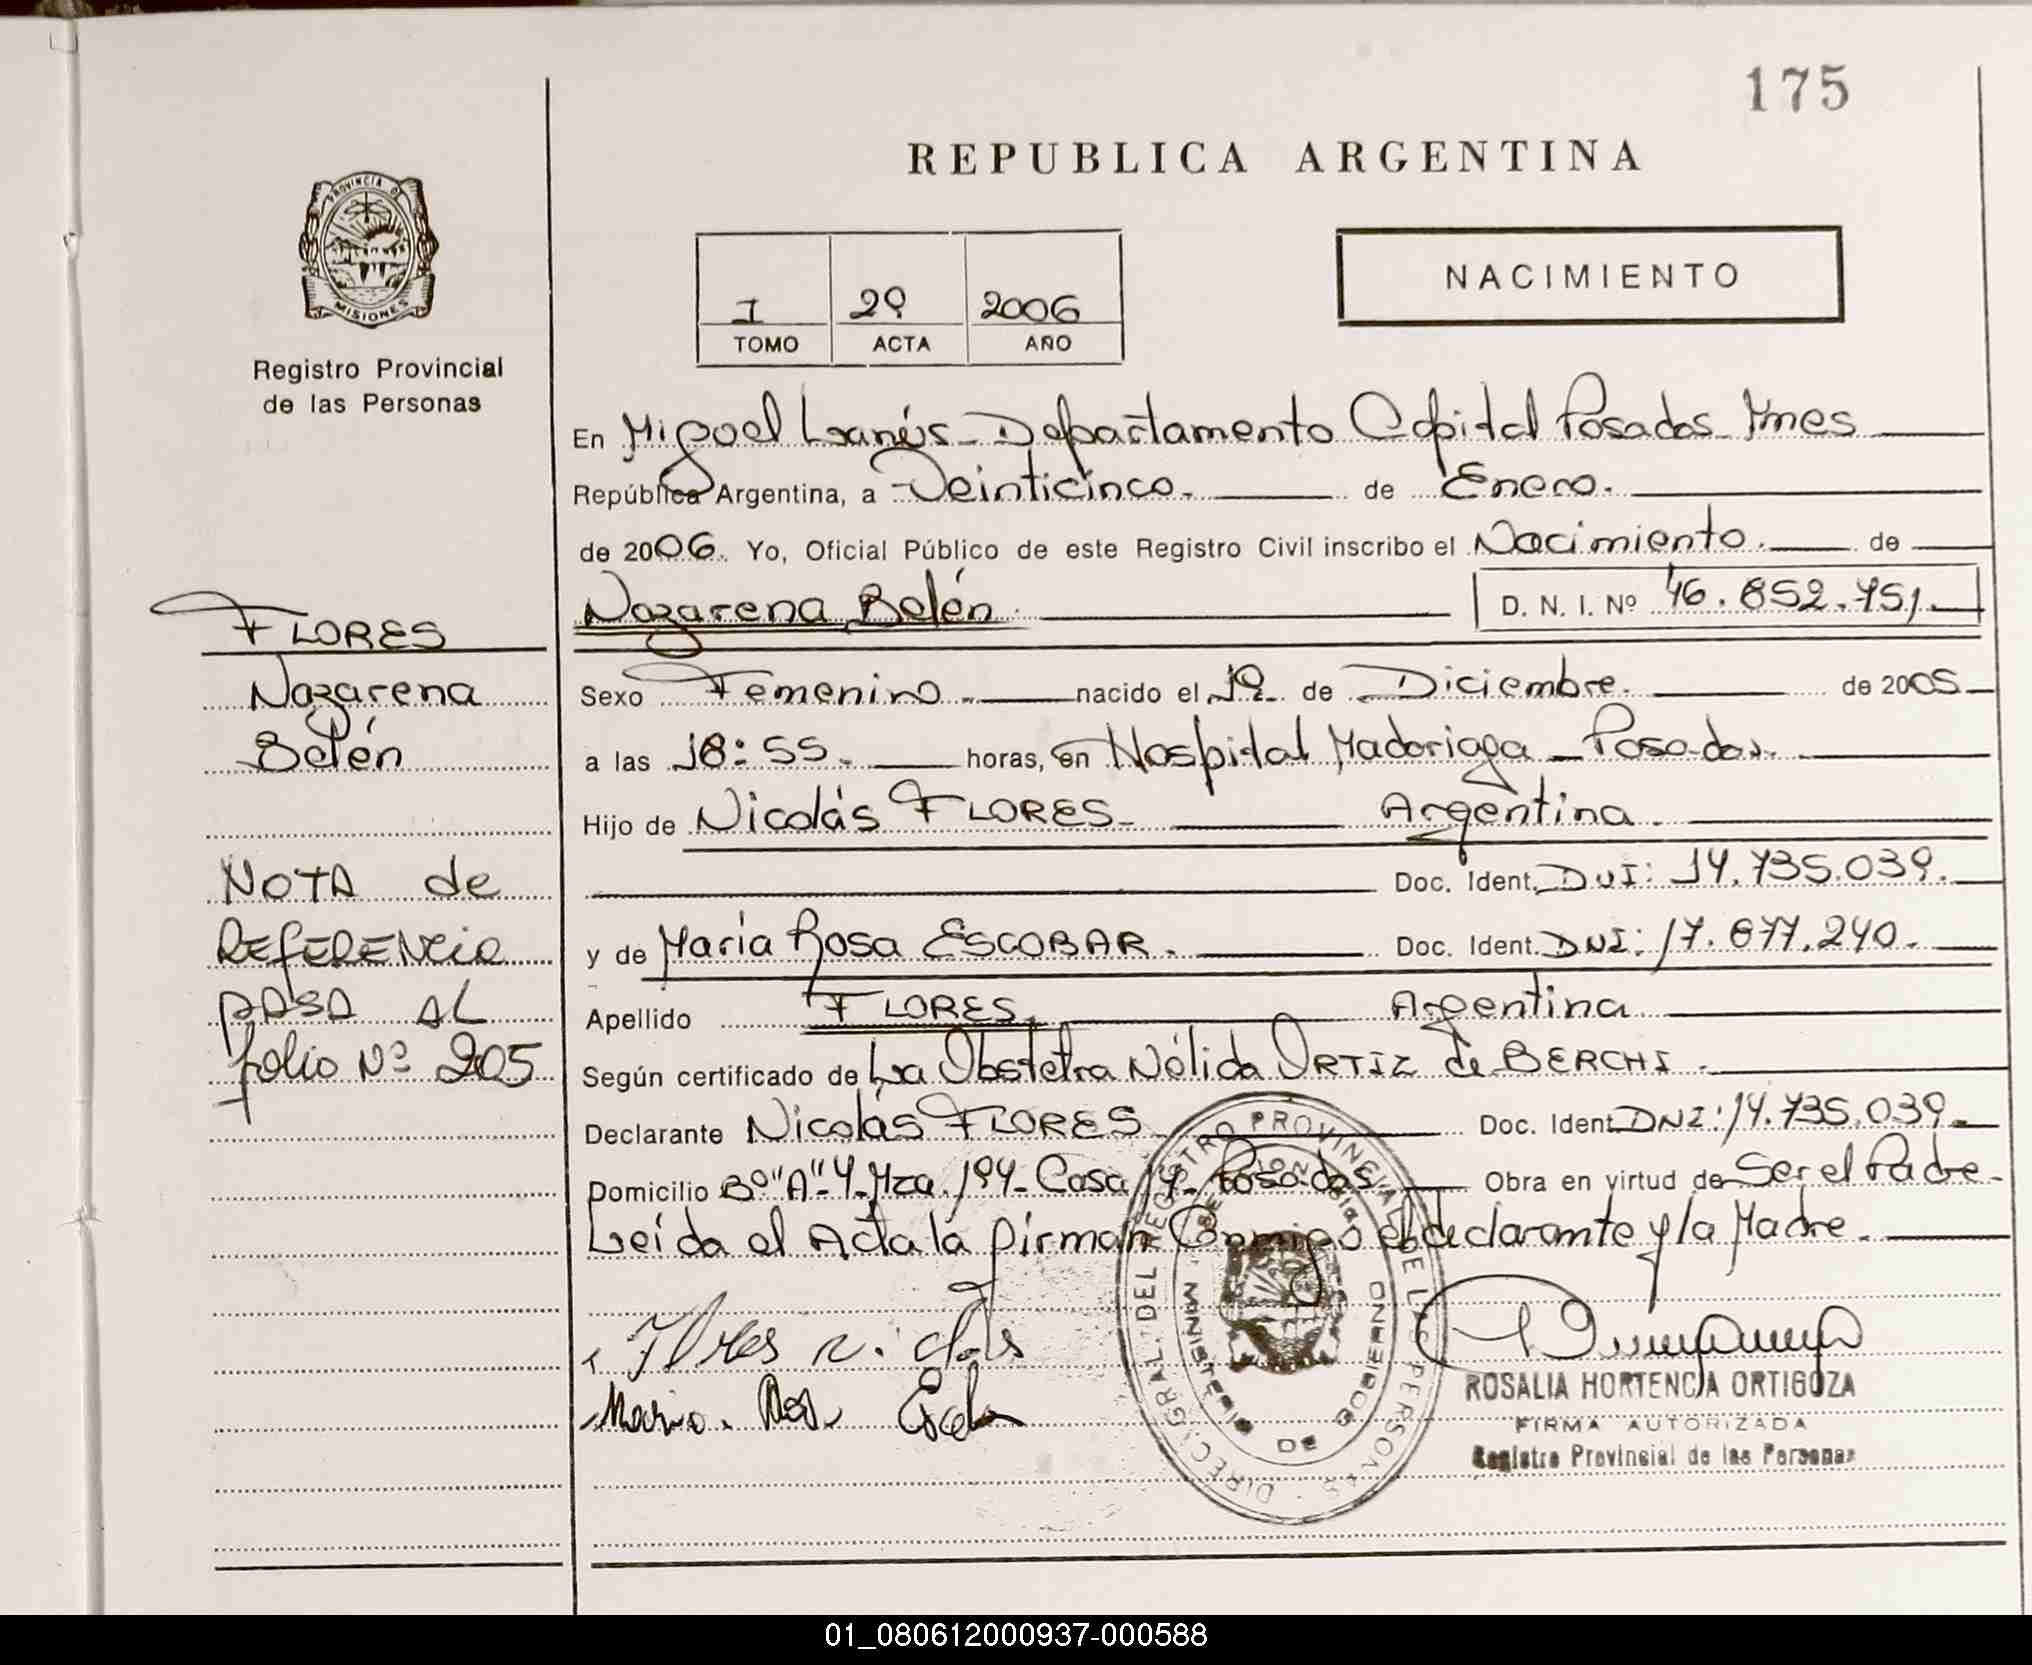 175
REPUBLICA ARGENTINA
PROVINCIA DE
MISIONES
Registro Provincial
de las Personas
I 29 2006
TOMO ACTA AÑO
NACIMIENTO
En Miguel Lanús - Departamento Capital Posadas - Mnes
República Argentina, a Veinticinco. de Enero.
de 2006. Yo, Oficial Público de este Registro Civil inscribo el Nacimiento. de
Nazarena Belén. D. N. I. Nº 46.852.751.
Sexo Femenino. nacido el 19 de Diciembre. de 2005
a las 18:55. horas, en Hospital Madariaga - Posadas.
Hijo de Nicolás FLORES. Argentina.
Doc. Ident. DNI: 14.735.039.
y de María Rosa ESCOBAR. Doc. Ident. DNI: 17.877.240.
Apellido FLORES. Argentina
Según certificado de La Obstetra Nélida ORTIZ de BERCHI.
Declarante Nicolás FLORES Doc. Ident DNI: 14.735.039.
Domicilio Bº "A"-4-Mza. 194- Casa 14- Posadas Obra en virtud de Ser el Padre-
Leída el Acta la firman Conmigo el declarante y la Madre.
FLORES
Nazarena
Belén
NOTA de
REFERENCIA
PASA AL
folio Nº 205
Flores Nicolás
Maria Rosa Escobar
DIREC. GRAL. DEL REGISTRO PROVINCIAL DE LAS PERSONAS
MINISTERIO DE GOBIERNO
ROSALIA HORTENCIA ORTIGOZA
FIRMA AUTORIZADA
Registro Provincial de las Personas
01_080612000937-000588